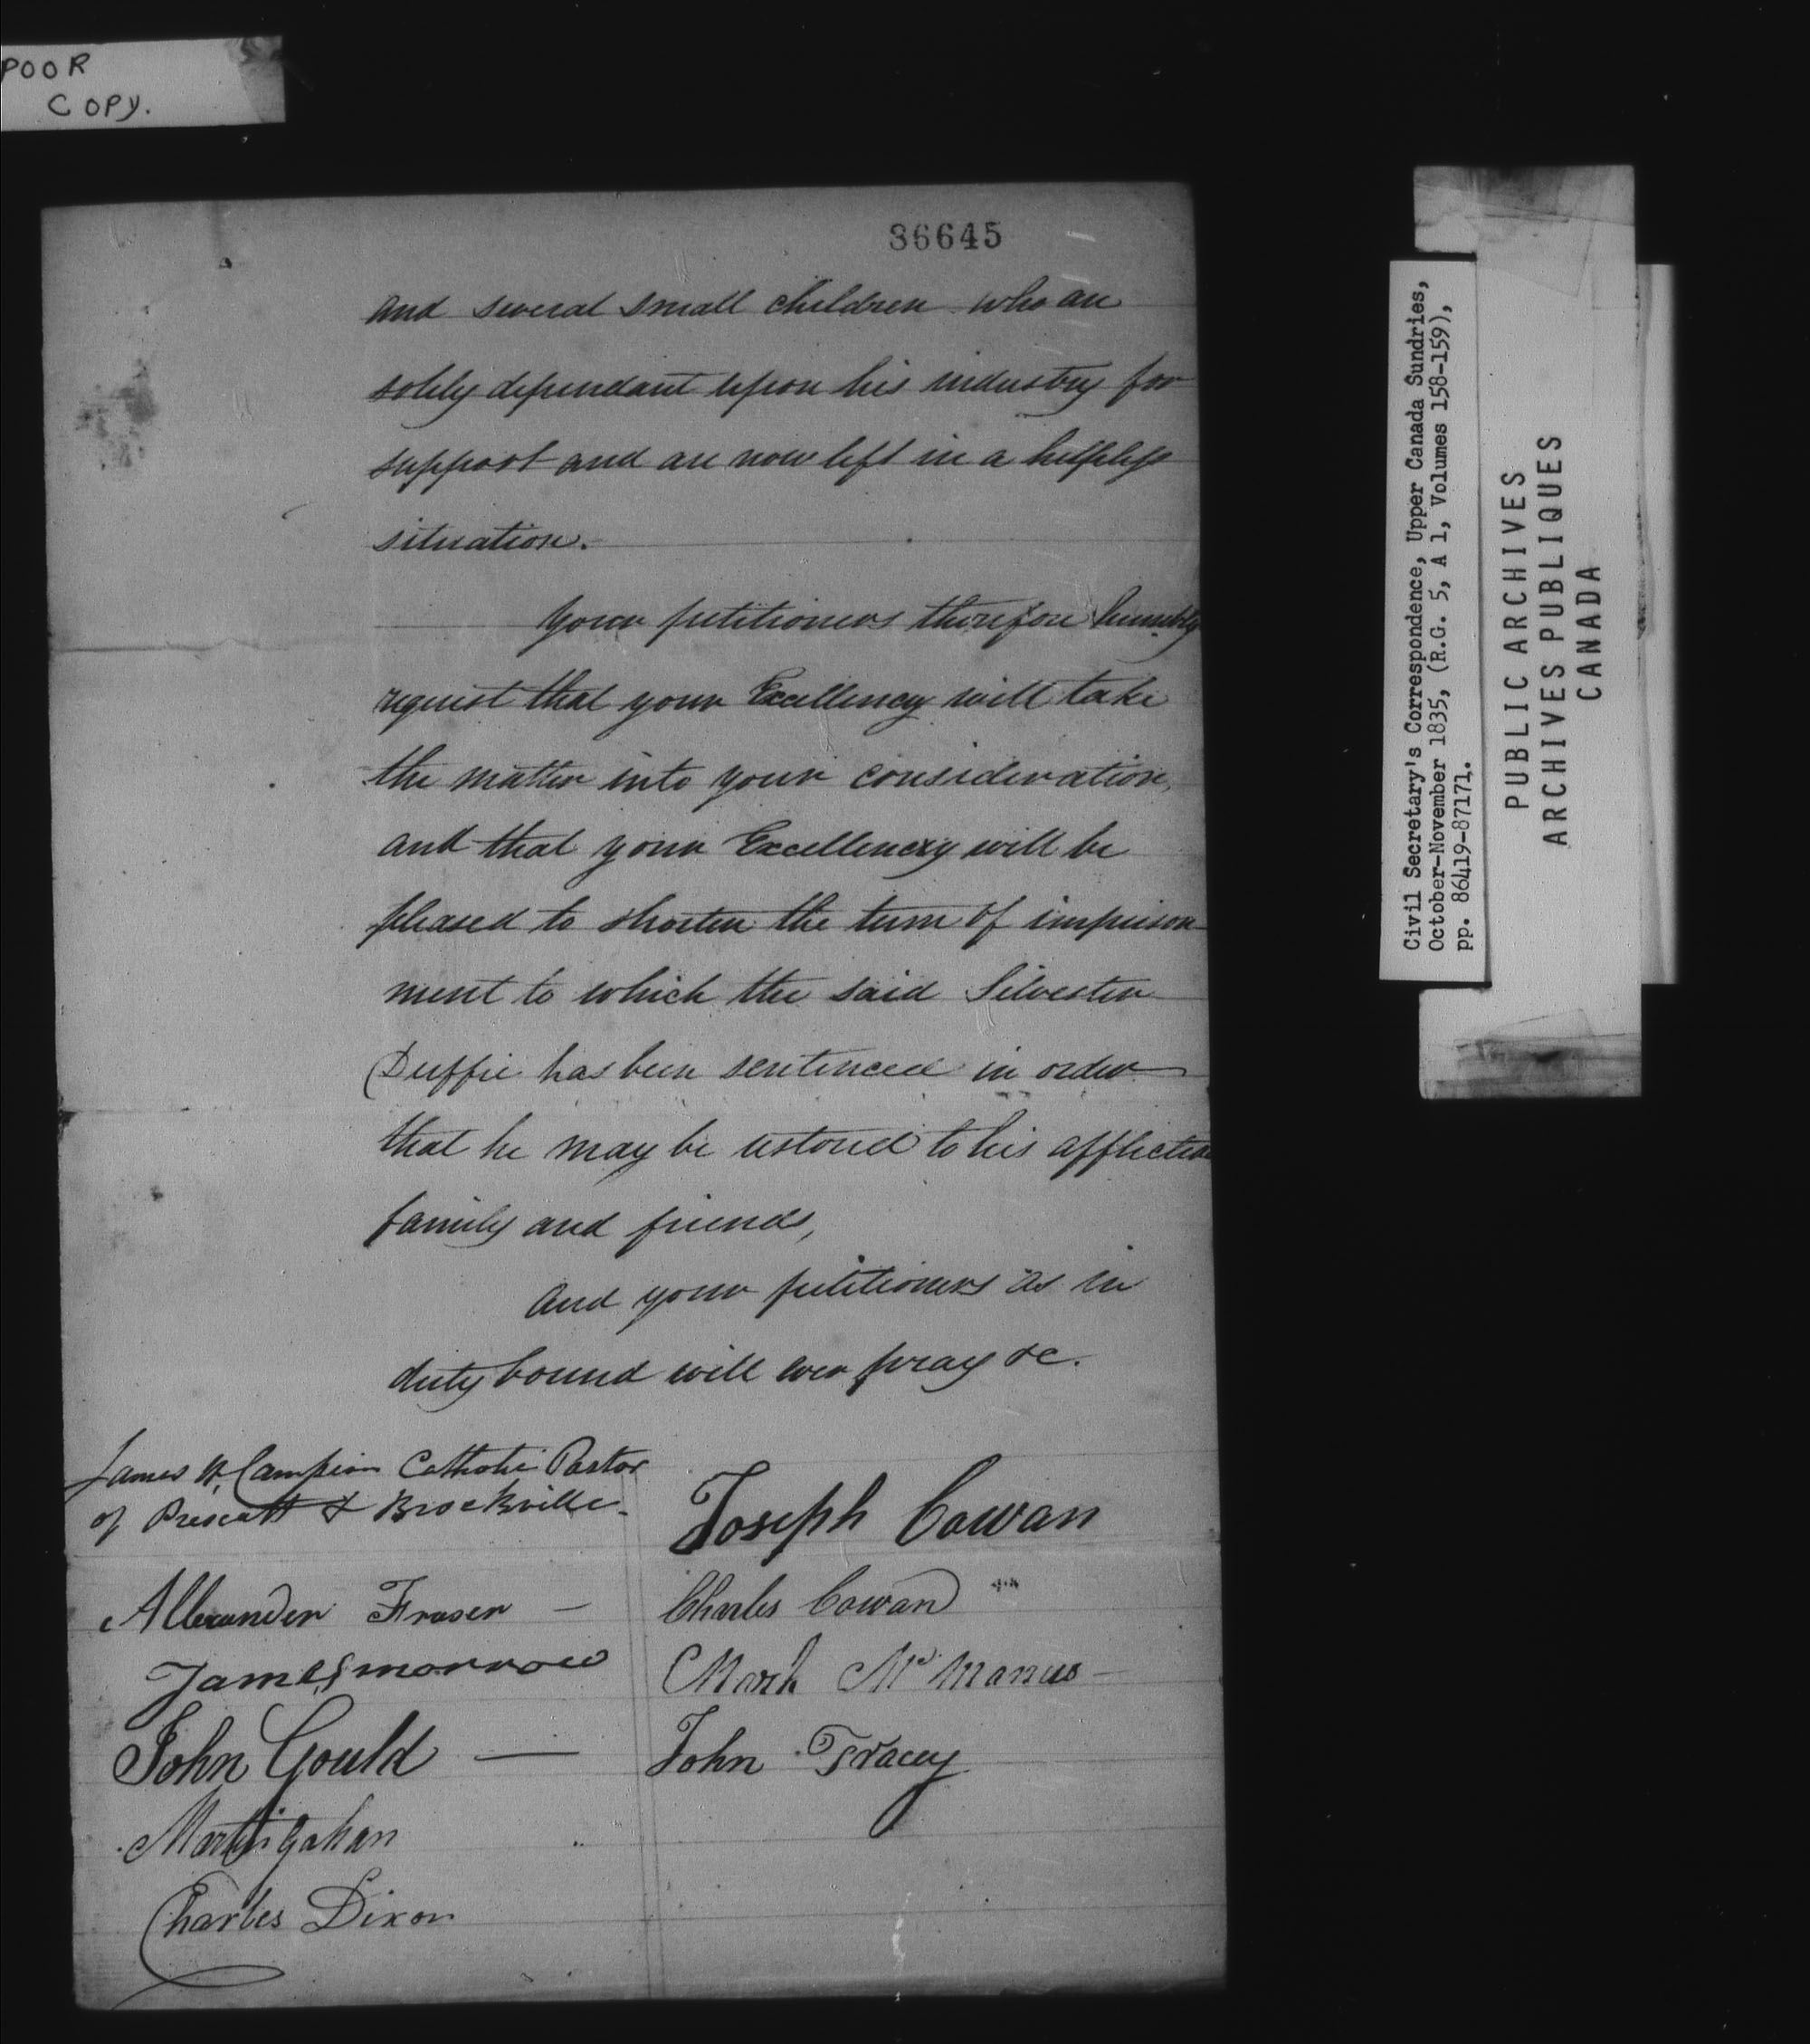 POOR
COPY.
86645
and several small children who are
solely dependant upon his industry for
support and are now left in a helpless
situation.
Your petitioners therefore humbly
request that your Excellency will take
the matter into your consideration,
and that your Excellency will be
pleased to shorten the term of imprison
ment to which the said Silvester
Duffie has been sentenced in order
that he may be restored to his
family and friends,
And your petitioners as in
duty bound will ever pray &c.
James W. Campion Catholic Pastor
of Prescott & Brockville.
Alexander Fraser —
James morrow
John Gould —
Martin gahan
Charles Dixon
Joseph Cowan
Charles Cowan
Mark Mc Manus
John Tracey
Civil Secretary's Correspondence, Upper Canada Sundries,
October-November 1835, (R.G. 5, A 1, Volumes 158-159),
pp. 86419-87171.
PUBLIC ARCHIVES
ARCHIVES PUBLIQUES
CANADA